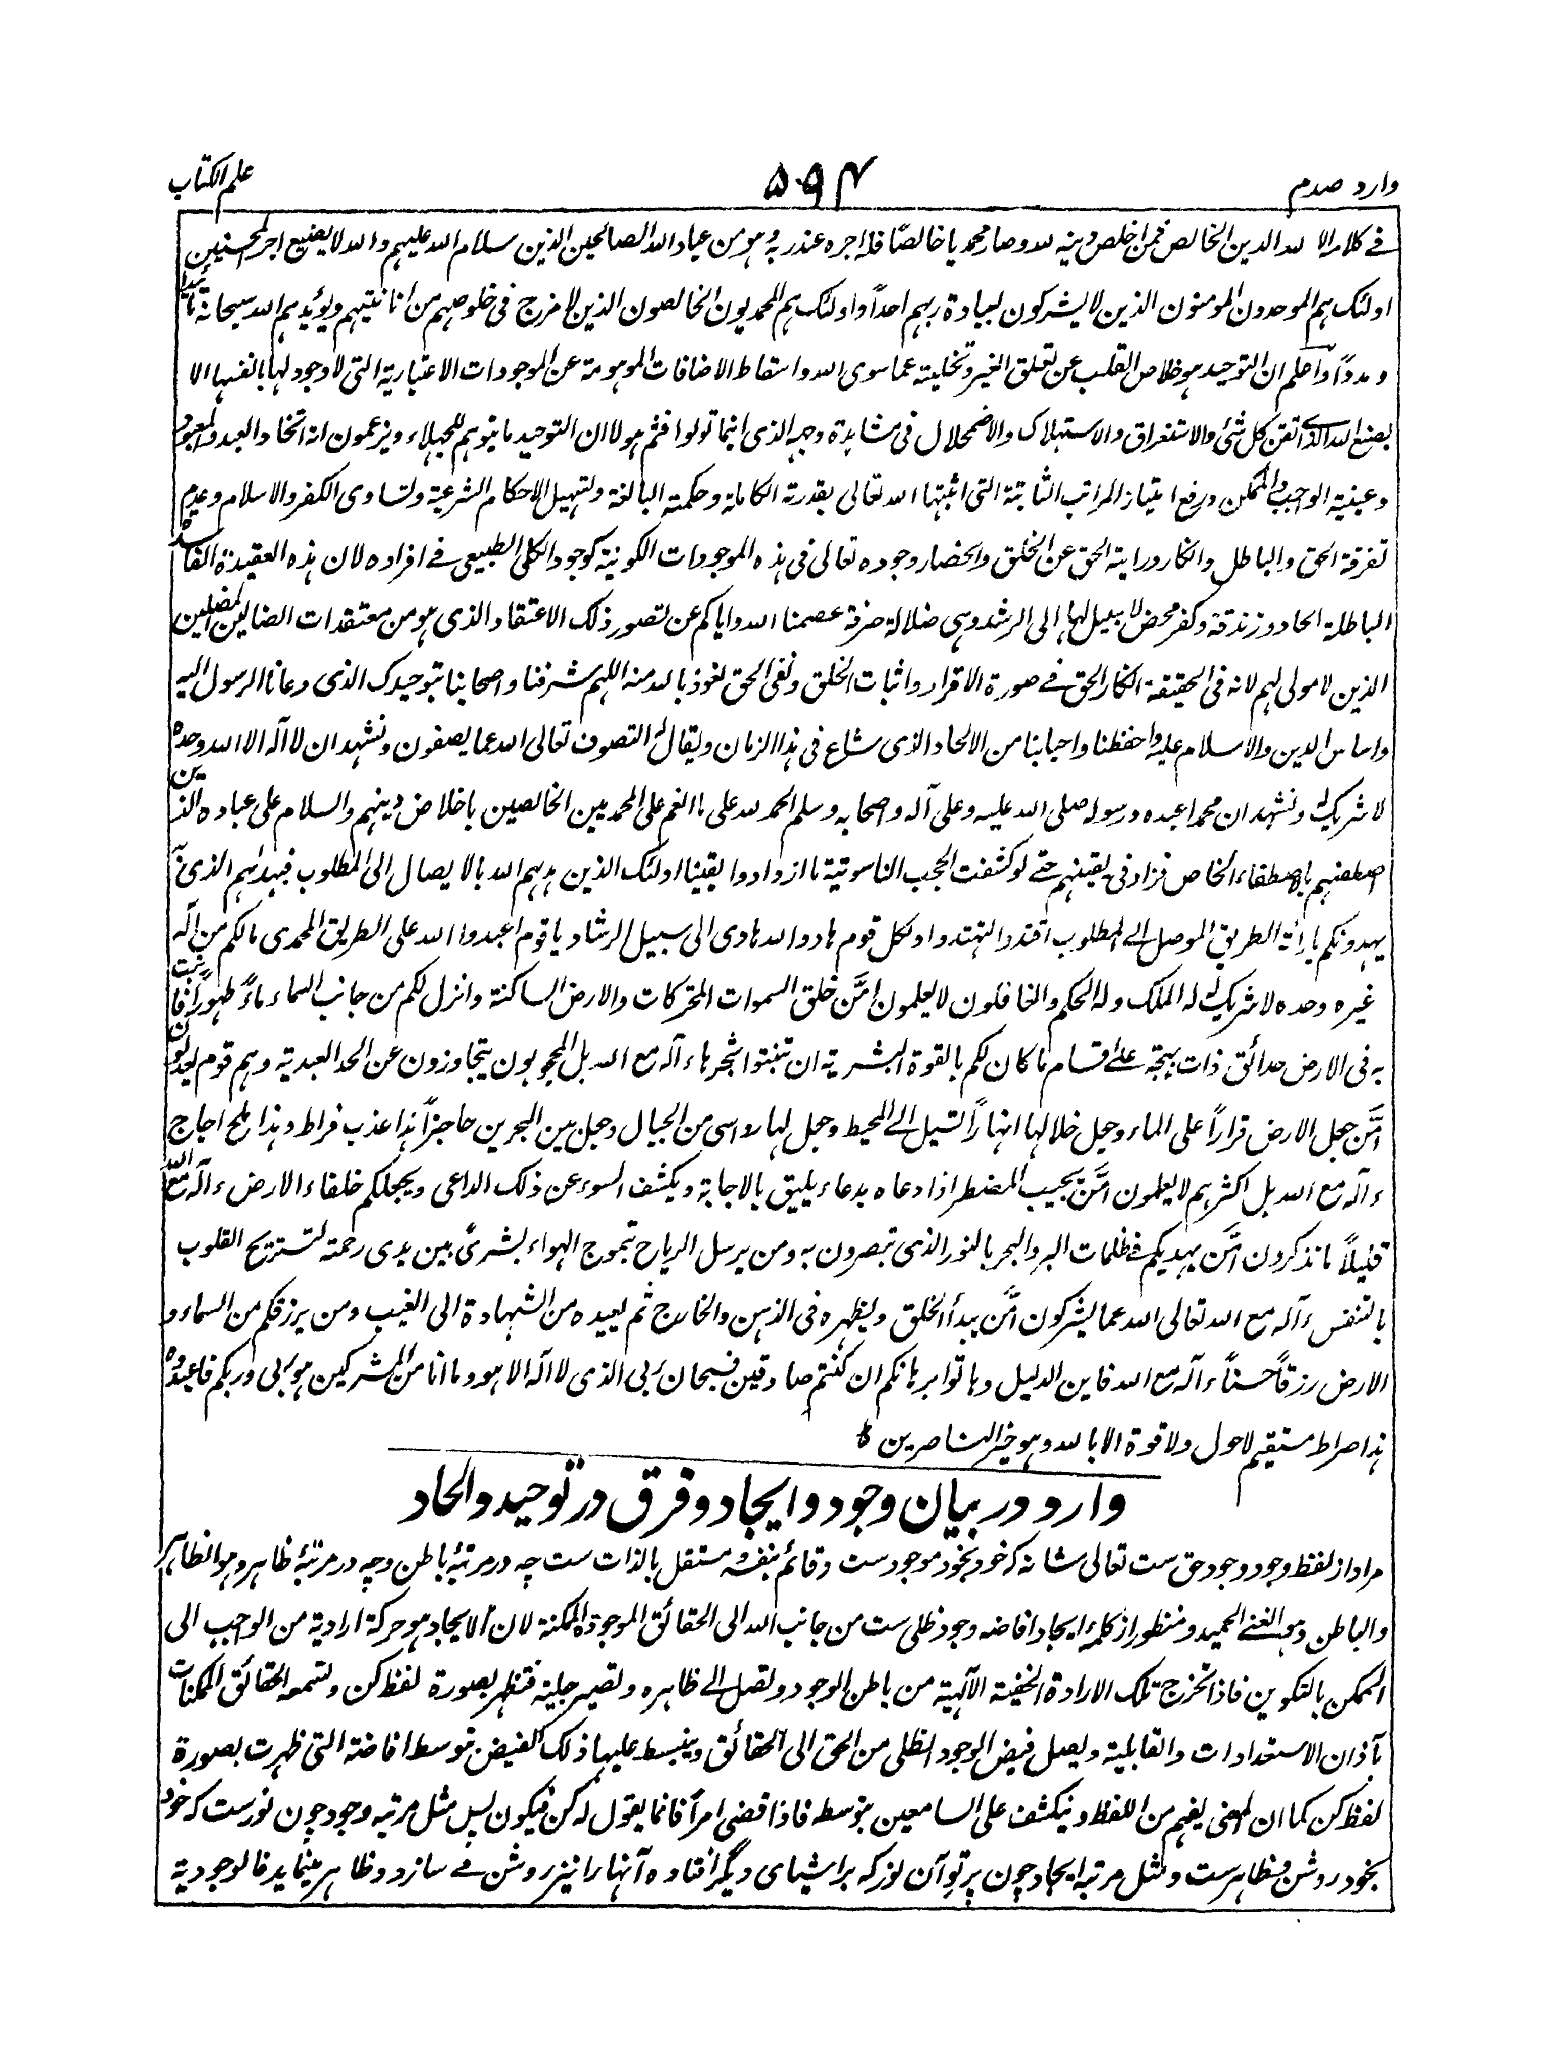 وارد صدم
۵۹۴
علم الکتاب
فی کلامہ الا للہ الدین الخالص فمن اخلص دینہ للہ وصار محمدیا خالصًا فلہ اجرہ عند ربہ وہو من عباد اللہ الصالحین الذین سلام اللہ علیہم واللہ لا یضیع اجر المحسنین
اولئک ہم الموحدون المومنون الذین لا یشرکون لعبادۃ ربہم احداً واولئک ہم المحمدیون الخالصون الذین لا مزج فی خلوصہم من انانیتہم ویؤیدہم اللہ سبحانہ تائیدا
ومدداً واعلم ان التوحید ہو خلاص القلب عن تعلق الغیر وتخلیتہ عما سوی اللہ واسقاط الاضافات الموہومۃ عن الموجودات الاعتباریۃ التی لا وجود لہا بانفسہا الا
بصنع اللہ الذی اتقن کل شئ والاستغراق والاستہلاک والاضمحلال فی مشاہدۃ وجہہ الذی اینما تولوا فثم ہو لا ان التوحید ما یتوہم للجہلاء ویزعمون انہ اتحاد العبد والمعبود
وعینیۃ الواجب والممکن ورفع امتیاز المراتب الثابتۃ التی اثبتہا اللہ تعالی بقدرتہ الکاملۃ وحکمتہ البالغۃ وتسہیل الاحکام الشرعیۃ وتساوی الکفر والاسلام وعدم
تفرقۃ الحق والباطل وانکار ورایتہ الحق عن الخلق وانحصار وجودہ تعالی فی ہذہ الموجودات الکونیۃ کوجود الکلی الطبیعی فی افرادہ لان ہذہ العقیدۃ الفاسدۃ
الباطلۃ الحاد وزندقۃ وکفر محض لا سبیل لہا الی الرشد وہی ضلالۃ صرفۃ عصمنا اللہ وایاکم عن تصور ذلک الاعتقاد الذی ہو من معتقدات الضالین المضلین
الذین لا مولی لہم لانہ فی الحقیقۃ انکار الحق فی صورۃ الاقرار واثبات الخلق ونفی الحق نعوذ باللہ منہ اللہم شرفنا واصحابنا بتوحیدک الذی دعانا الرسول الیہ
واساس الدین والاسلام علیہ واحفظنا واحبابنا من الالحاد الذی شاع فی ہذا الزمان ویقال لہ التصوف تعالی اللہ عما یصفون ونشہد ان لا الہ الا اللہ وحدہ
لا شریک لہ ونشہد ان محمدا عبدہ ورسولہ صلی اللہ علیہ وعلی آلہ واصحابہ وسلم الحمد للہ علی ما انعم علی المحمدیین الخالصین باخلاص دینہم والسلام علی عبادہ الذین
اصطفہم باصطفاء الخاص فزاد فی یقینہم حتی لو کشفت الحجب الناسوتیۃ ما ازدادوا یقینا اولئک الذین ہدہم اللہ بالایصال الی المطلوب فبہدٰہم الذی
یہدونکم باراءۃ الطریق الموصل الی المطلوب اقتدوا لتہتدوا ولکل قوم ہاد واللہ ہادی الی سبیل الرشاد یا قوم اعبدوا اللہ علی الطریق المحمدی ما لکم من الہ
غیرہ وحدہ لا شریک لہ لہ الملک ولہ الحکم والغافلون لا یعلمون امَّن خلق السموات المتحرکات والارض الساکنۃ وانزل لکم من جانب السماء ماءً طہوراً فانبت
بہ فی الارض حدائق ذات بہجۃ علی اقسام ما کان لکم بالقوۃ البشریۃ ان تنبتوا شجرہا ءالہ مع اللہ بل المحجوبون یتجاوزون عن الحد العبدیۃ وہم قوم یعدلون
امَّن جعل الارض قراراً علی الماء وجعل خلالہا انہاراً لتسیل الی المحیط وجعل لہا رواسی من الجبال وجعل بین البحرین حاجزاً ہذا عذب فراط وہذا ملح اجاج
ءالہ مع اللہ بل اکثرہم لا یعلمون امَّن یجیب المضطر اذا دعاہ بدعاء یلیق بالاجابۃ ویکشف السوء عن ذلک الداعی ویجعلکم خلفاء الارض ءالہ مع اللہ
قلیلاً ما تذکرون امَّن یہدیکم فی ظلمات البر والبحر بالنور الذی تبصرون بہ ومن یرسل الریاح بتموج الہواء بشریً بین یدی رحمتہ لتستریح القلوب
بالتنفس ءالہ مع اللہ تعالی اللہ عما یشرکون امَّن یبدأ الخلق ویظہرہ فی الذہن والخارج ثم یعیدہ من الشہادۃ الی الغیب ومن یرزقکم من السماء و
الارض رزقاً حسناً ءالہ مع اللہ فاین الدلیل وہاتوا برہانکم ان کنتم صادقین فسبحان ربی الذی لا الہ الا ہو وما انا من المشرکین ہو ربی وربکم فاعبدوہ
ہذا صراط مستقیم لا حول ولا قوۃ الا باللہ وہو خیر الناصرین
وارد در بیان وجود و ایجاد و فرق در توحید و الحاد
مراد از لفظ وجود وجود حق ست تعالی شانہ کہ خود بخود موجود ست و قائم بنفسہ و مستقل بالذات ست چہ در مرتبۂ باطن و چہ در مرتبۂ ظاہر و ہو الظاہر
والباطن وہو الغنی الحمید و منظور از کلمۂ ایجاد افاضہ وجود ظلی ست من جانب اللہ الی الحقائق الموجودۃ الممکنۃ لان الایجاد ہو حرکۃ ارادیۃ من الواجب الی
الممکن بالتکوین فاذا تخرج تلک الارادۃ الخفیۃ الالٰہیۃ من باطن الوجود وتصل الی ظاہرہ وتصیر جلیۃ فتظہر بصورۃ لفظ کن وتسمعہ الحقائق الممکنات
بآذان الاستعدادات والقابلیۃ ویصل فیض الوجود الظلی من الحق الی الحقائق وینبسط علیہا ذلک الفیض بتوسط افاضتہ التی ظہرت بصورۃ
لفظ کن کما ان المعنی یفہم من اللفظ وینکشف علی السامعین بتوسطہ فاذا قضی امراً فانما یقول لہ کن فیکون پس مثل مرتبہ وجود چون نور ست کہ خود
بخود روشن و ظاہر ست و مثل مرتبہ ایجاد چون پرتو آن نور کہ بر اشیای دیگر افتادہ آنہا را نیز روشن می سازد و ظاہر مینماید فالوجودیۃ